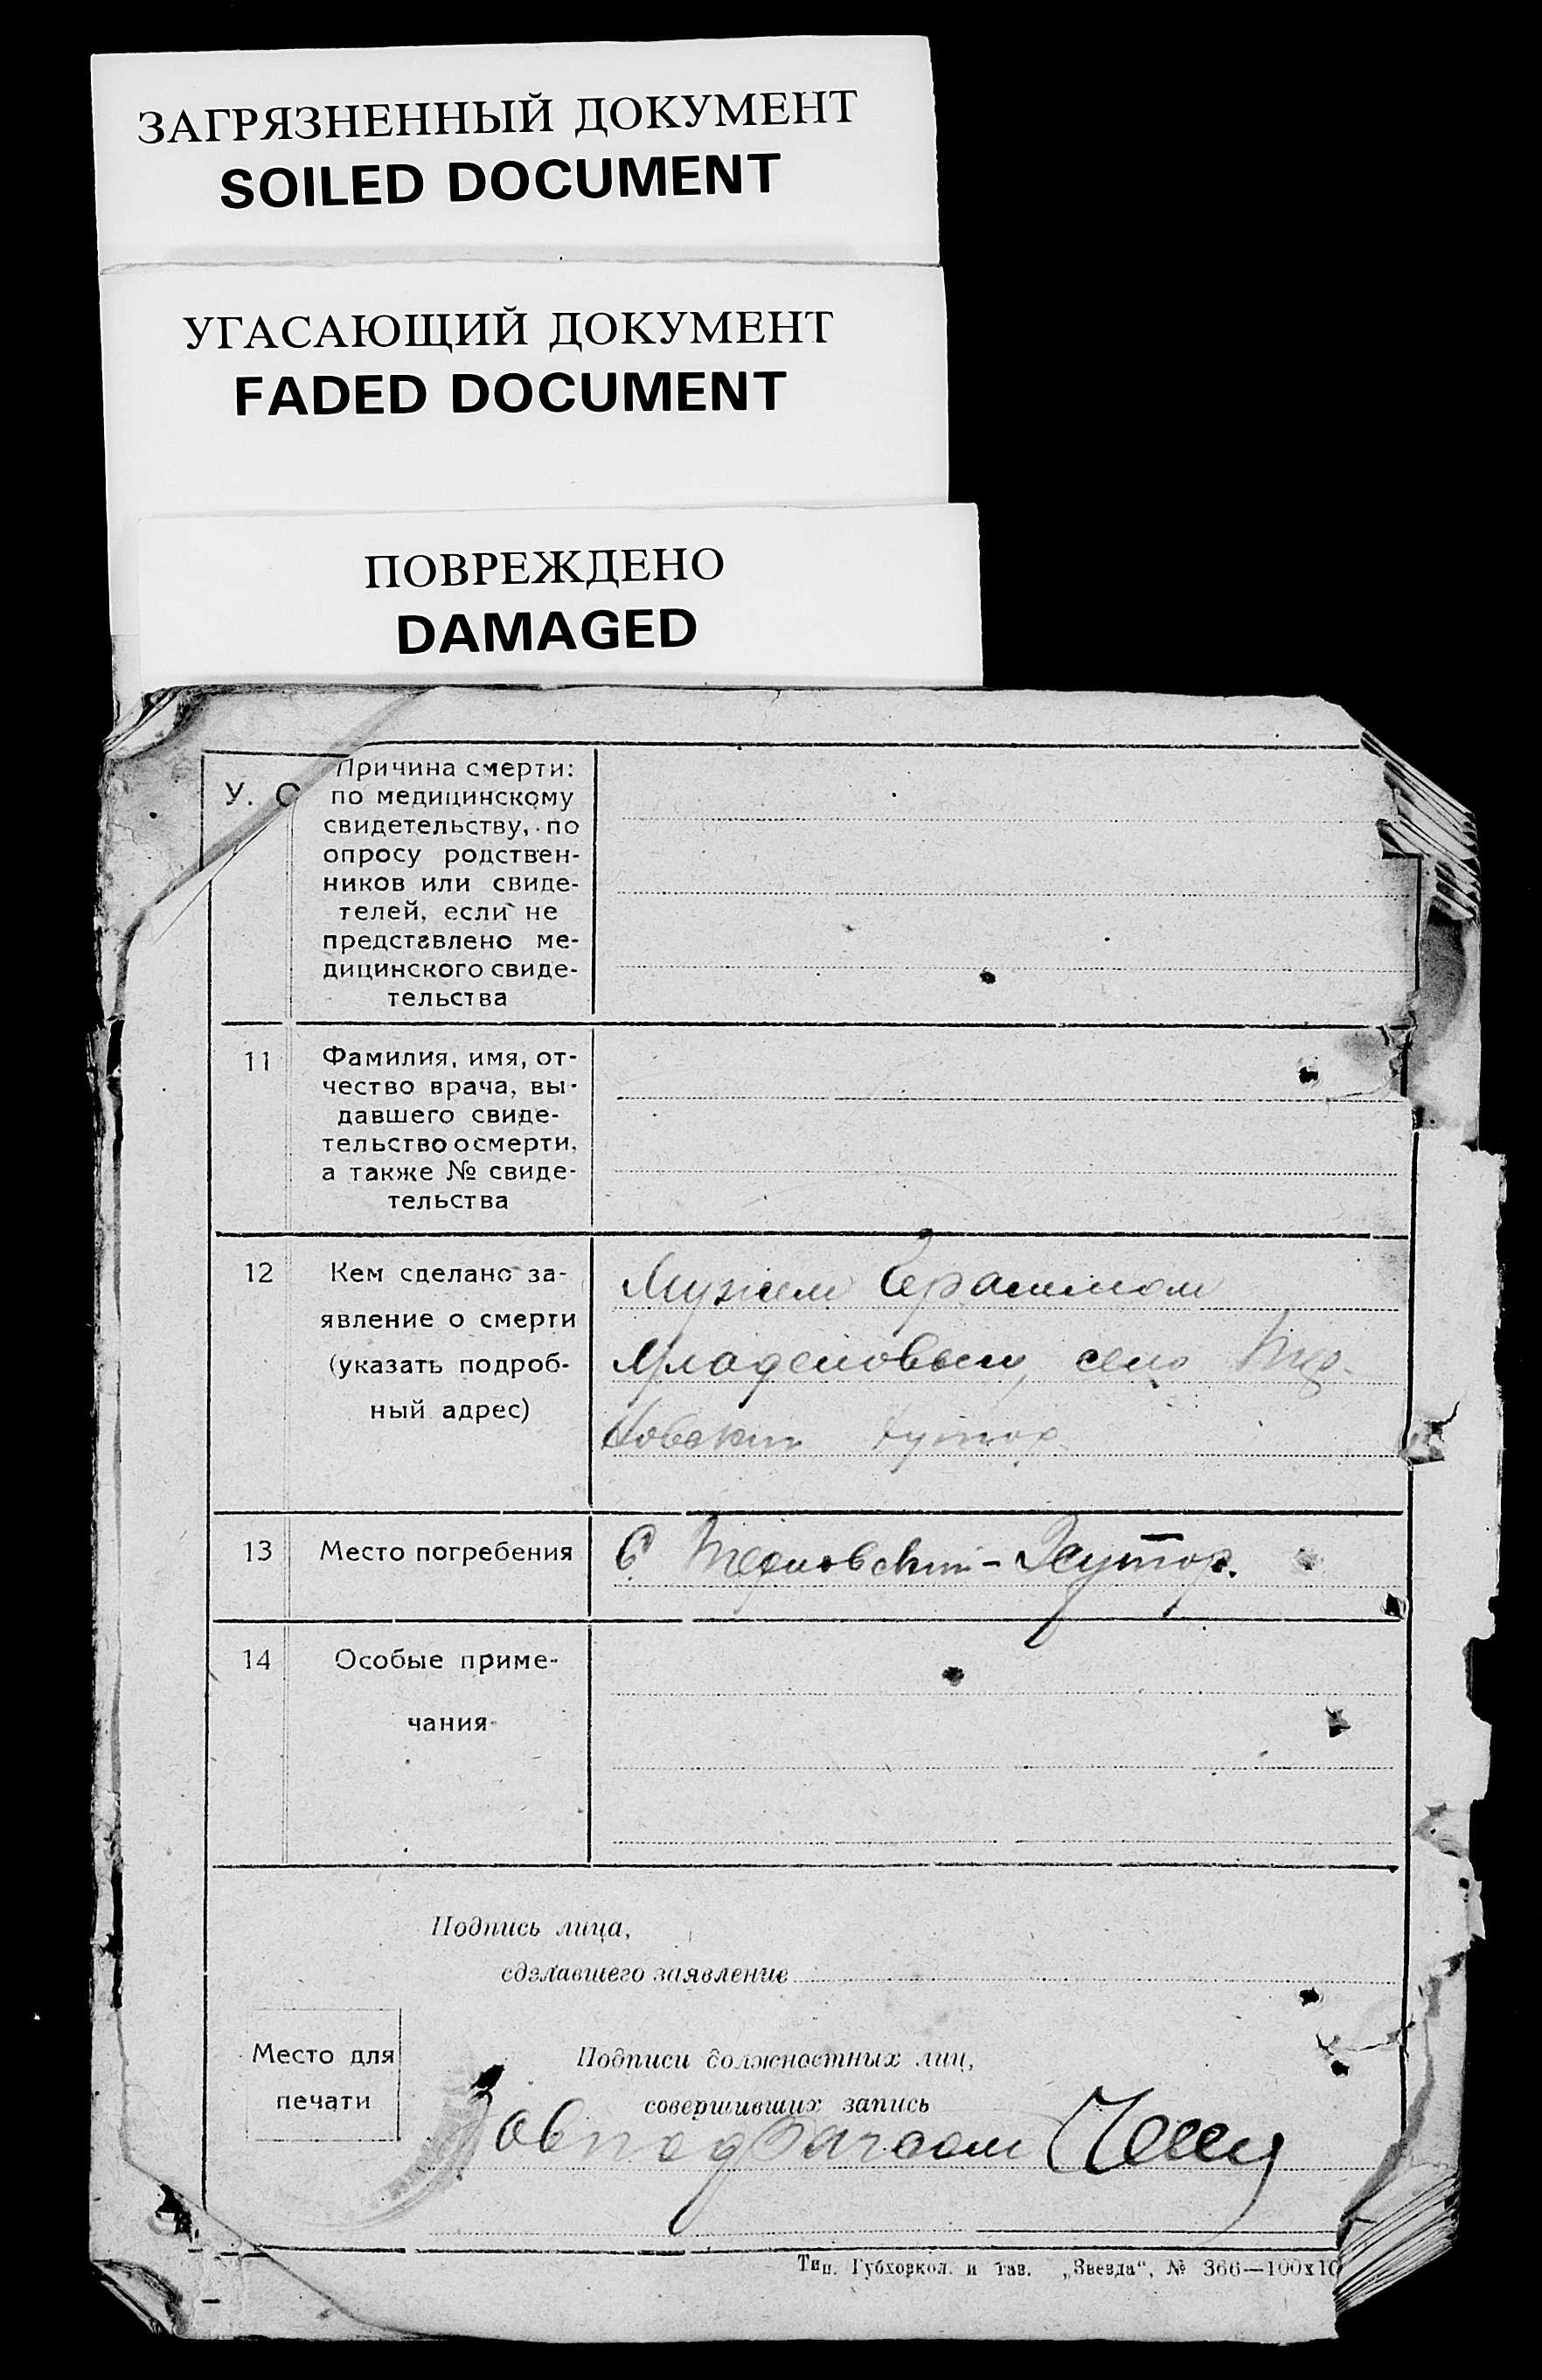 ЗАГРЯЗНЕННЫЙ ДОКУМЕНТ
SOILED DOCUMENT
УГАСАЮЩИЙ ДОКУМЕНТ
FADED DOCUMENT
ПОВРЕЖДЕНО
DAMAGED
У. С
Причина смерти:
по медицинскому
свидетельству, по
опросу родствен-
ников или свиде-
телей, если не
представлено ме-
дицинского свиде-
тельства
11
Фамилия, имя, от-
чество врача, вы-
давшего свиде-
тельство о смерти,
а также № свиде-
тельства
12
Кем сделано за-
явление о смерти
(указать подроб-
ный адрес)
Мужем Герасимом
Младеновым, село Тер-
новский хутор
13
Место погребения
С. Терновский-Хутор.
14
Особые приме-
чания
Подпись лица,
сделавшего заявление
Место для
печати
Подписи должностных лиц,
совершивших запись
Тип. Губхозкол. и газ. „Звезда“, № 366—100х10